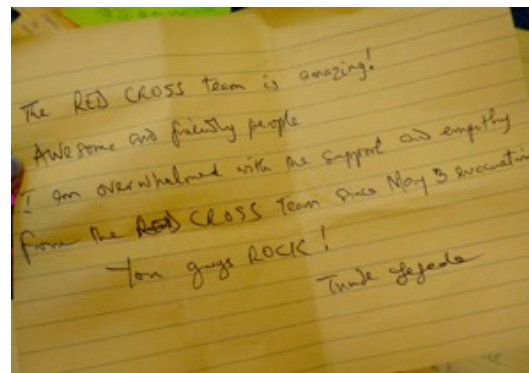 The RED CROSS team is amazing!
Awesome and friendly people
I am overwhelmed with the support and empathy
from the RED CROSS Team since May 3 evacuation
You guys ROCK!